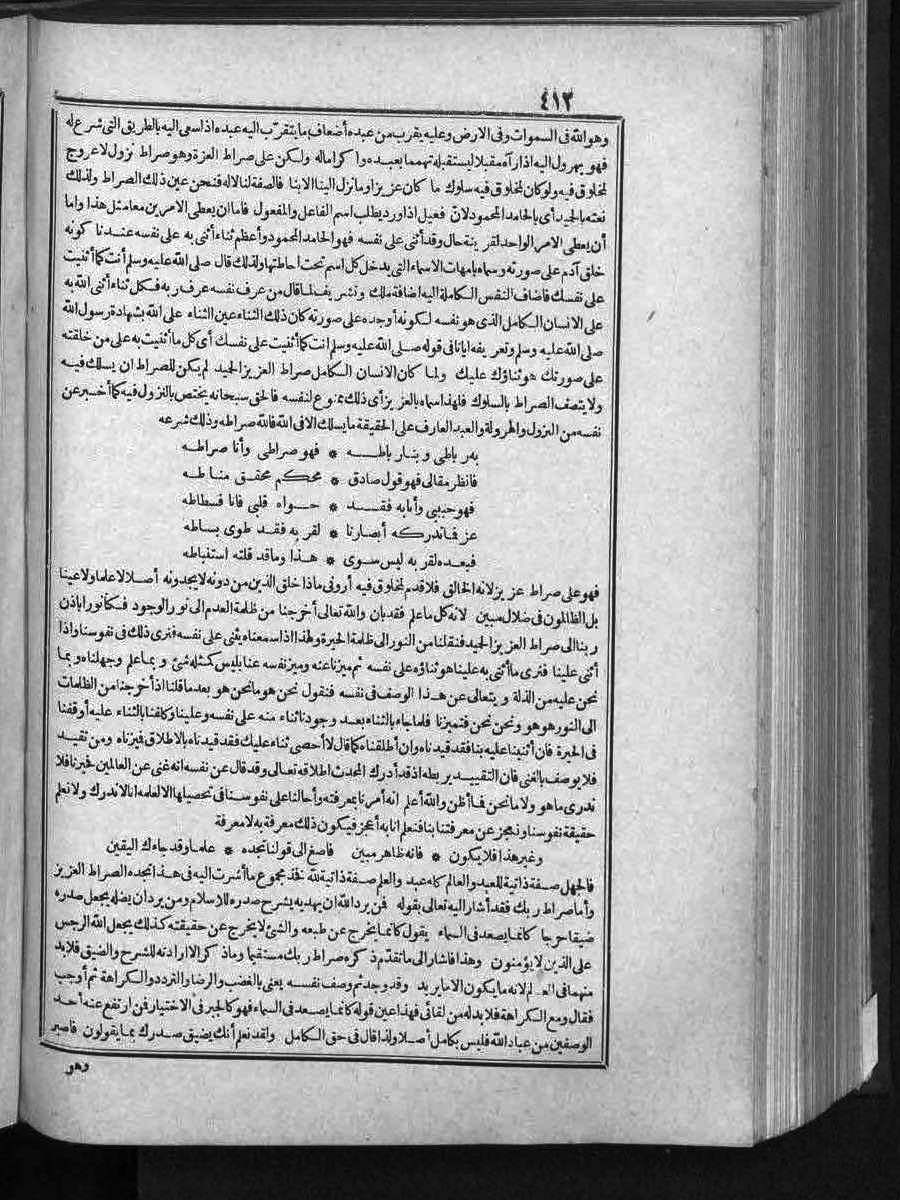 ٤١٢
وهو الله فى السموات وفى الارض وعليه يقرب من عبده أضعاف ما يتقرّب اليه عبده اذا سعى اليه بالطريق التى شرع له
فهو يهرول اليه اذا رآه مقبلا ليستقبله تهمما بعبده واكراما له ولكن على صراط العزة وهو صراط نزول لا عروج
لمخلوق فيه ولو كان لمخلوق فيه سلوك ما كان عزيزا وما نزل الينا الا بنا فالصفة لنا لا له فنحن عين ذلك الصراط ولذلك
نعته بالحميد أى بالحامد المحمود لان فعيل اذا ورد يطلب اسم الفاعل والمفعول فاما ان يعطى الامرين معا مثل هذا واما
أن يعطى الامر الواحد لقرينة حال وقد أثنى على نفسه فهو الحامد المحمود وأعظم ثناء أثنى به على نفسه عندنا كونه
خلق آدم على صورته وسماه بامهات الاسماء التى يدخل كل اسم تحت احاطتها ولذلك قال صلى الله عليه وسلم أنت كما أثنيت
على نفسك فاضاف النفس الكاملة اليه اضافة ملك وتشريف لما قال من عرف نفسه عرف ربه فكل ثناء أثنى الله به
على الانسان الكامل الذى هو نفسه لكونه أوجده على صورته كان ذلك الثناء عين الثناء على الله بشهادة رسول الله
صلى الله عليه وسلم وتعريفه ايانا فى قوله صلى الله عليه وسلم انت كما أثنيت على نفسك أى كل ما أثنيت به على من خلقته
على صورتك هو ثناؤك عليك ولما كان الانسان الكامل صراط العزيز الحميد لم يكن للصراط ان يسلك فيه
ولا يتصف الصراط بالسلوك فلهذا سماه بالعزيز أى ذلك ممنوع لنفسه فالحق سبحانه يختص بالنزول فيه كما أخبر عن
نفسه من النزول والهرولة والعبد العارف على الحقيقة ما يسلك الا فى الله فالله صراطه وذلك شرعه
به رباطى وبنا رباطه * فهو صراطى وأنا صراطه
فانظر مقالى فهو قول صادق * محكم محقق مناطه
فهو حبيبى وأنا به فقد * حواه قلبى فانا فسطاطه
عز فما ندركه أبصارنا * لقربه فقد طوى بساطه
فبعده لقربه ليس سوى * هذا وما قد قلته استنباطه
فهو على صراط عزيز لانه الخالق فلا قدم لمخلوق فيه أرونى ماذا خلق الذين من دونه لا يجدونه أصلا لا علما ولا عينا
بل الظالمون فى ضلال مبين لانه كل ما علم فقد بان والله تعالى أخرجنا من ظلمة العدم الى نور الوجود فكنا نورا باذن
ربنا الى صراط العزيز الحميد فنقلنا من النور الى ظلمة الحيرة ولهذا اذا سمعناه يثنى على نفسه فنرى ذلك فى نفوسنا واذا
أثنى علينا فنرى ما أثنى به علينا هو ثناؤه على نفسه ثم ميزنا عنه وميز نفسه عنا بليس كمثله شئ وبما علم وجهلناه وبما
نحن عليه من الذلة ويتعالى عن هذا الوصف فى نفسه فنقول نحن هو ما نحن هو بعد ما قلنا اذ أخرجنا من الظلمات
الى النور هو هو ونحن نحن فتميزنا فلما جاء بالثناء بعد وجودنا ثناء منه على نفسه وعلينا وكلفنا بالثناء عليه أوقفنا
فى الحيرة فان أثنينا عليه بنا فقد قيدناه وان أطلقناه كما قال لا أحصى ثناء عليك فقد قيدناه بالاطلاق فيزناه ومن تقيد
فلا يوصف بالغنى فان التقييد يربطه اذ قد أدرك المحدث اطلاقه تعالى وقد قال عن نفسه انه غنى عن العالمين فيرنا فلا
ندرى ما هو ولا ما نحن فما أظن والله أعلم انه أمرنا بمعرفته وأحالنا على نفوسنا فى تحصيلها الا لعلمه انا لا ندرك ولا نعلم
حقيقة نفوسنا ونعجز عن معرفتنا بنا فنعلم انا به أعجز فيكون ذلك معرفة به لا معرفة
وغير هذا فلا يكون * فانه ظاهر مبين فاصغ الى قولنا تجده * علما وقد جاءك اليقين
فالجهل صفة ذاتية للعبد والعالم كله عبد والعلم صفة ذاتية لله فخذ مجموع ما أشرت اليه فى هذا تجده الصراط العزيز
وأما صراط ربك فقد أشار اليه تعالى بقوله فمن يرد الله ان يهديه يشرح صدره للاسلام ومن يرد ان يضله يجعل صدره
ضيقا حرجا كانما يصعد فى السماء يقول كانما يخرج عن طبعه والشئ لا يخرج عن حقيقته كذلك يجعل الله الرجس
على الذين لا يؤمنون وهذا فاشار الى ما تقدّم ذكره صراط ربك مستقيما وما ذكر الا ارادته للشرح والضيق فلا بد
منهما فى العالم لانه ما يكون الا ما يريد وقد وجد ثم وصف نفسه يعنى بالغضب والرضا والتردد والكراهة ثم أوجب
فقال ومع الكراهة فلا بد له من لقائى فهذا عين قوله كانما يصعد فى السماء فهو كالجبر فى الاختيار فمن ارتفع عنه أحد
الوصفين من عباد الله فليس بكامل أصلا ولذا قال فى حق الكامل ولقد نعلم أنك يضيق صدرك بما يقولون فاصبر
وهو